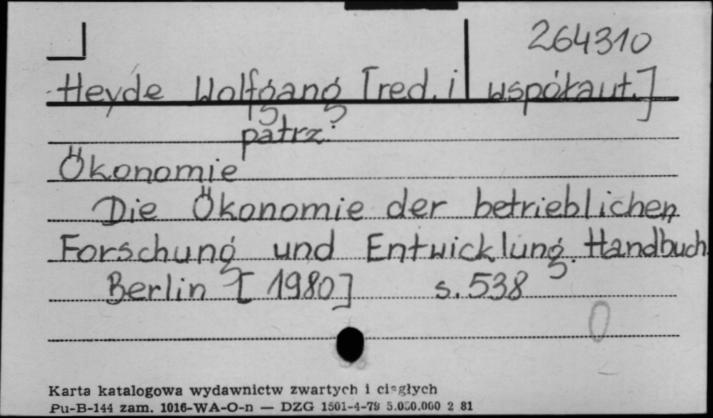 264310
Heyde Wolfgang [red. i współaut.]
patrz:
Ökonomie
Die Ökonomie der betrieblichen
Forschung und Entwicklung. Handbuch
Berlin [1980] s. 538
0
Karta katalogowa wydawnictw zwartych i ciągłych
Pu-B-144 zam. 1016-WA-O-n — DZG 1501-4-79 5.000.000 2 81